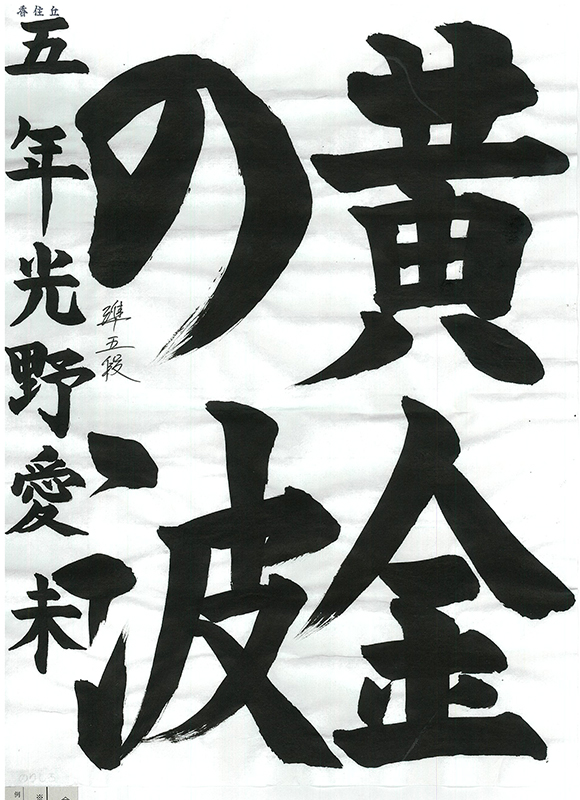 黄金
の波
準五段
五年光野愛未
香住丘